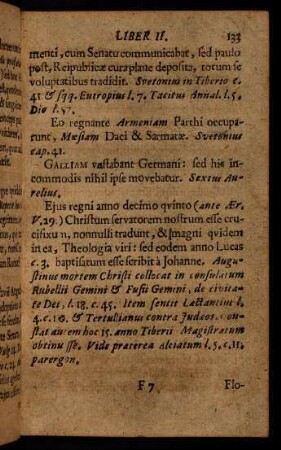 LIBER II. 133
menti, cum Senatu communicabat, sed paulo
post, Reipublicæ cura plane deposita, totum se
voluptatibus tradidit. Svetonius in Tiberio c.
41 & sqq. Eutropius l. 7. Tacitus Annal. l. 5.
Dio l. 57.
Eo regnante Armeniam Parthi occupa-
runt, Mæsiam Daci & Sarmatæ. Svetonius
cap. 41.
GALLIAM vastabant Germani: sed his in-
commodis nihil ipse movebatur. Sextus Au-
relius.
Ejus regni anno decimo qvinto (ante Ær.
V. 29.) Christum servatorem nostrum esse cru-
cifixum, nonnulli tradunt, & magni quidem
in ea, Theologia viri: sed eodem anno Lucas
c. 3. baptisatum esse scribit a Johanne. Augu-
stinus mortem Christi collocat in consulatum
Rubellii Gemini & Fusii Gemini, de civita-
te Dei, l. 18. c. 45. Item sentit Lactantius l.
4. c. 10. & Tertulianus contra Judæos.
stat autem hoc 15. anno Tiberii Magistratum
obtinuisse. Vide præterea Alciatum l. 5. c. 11.
parergon.
F 7 Flo-